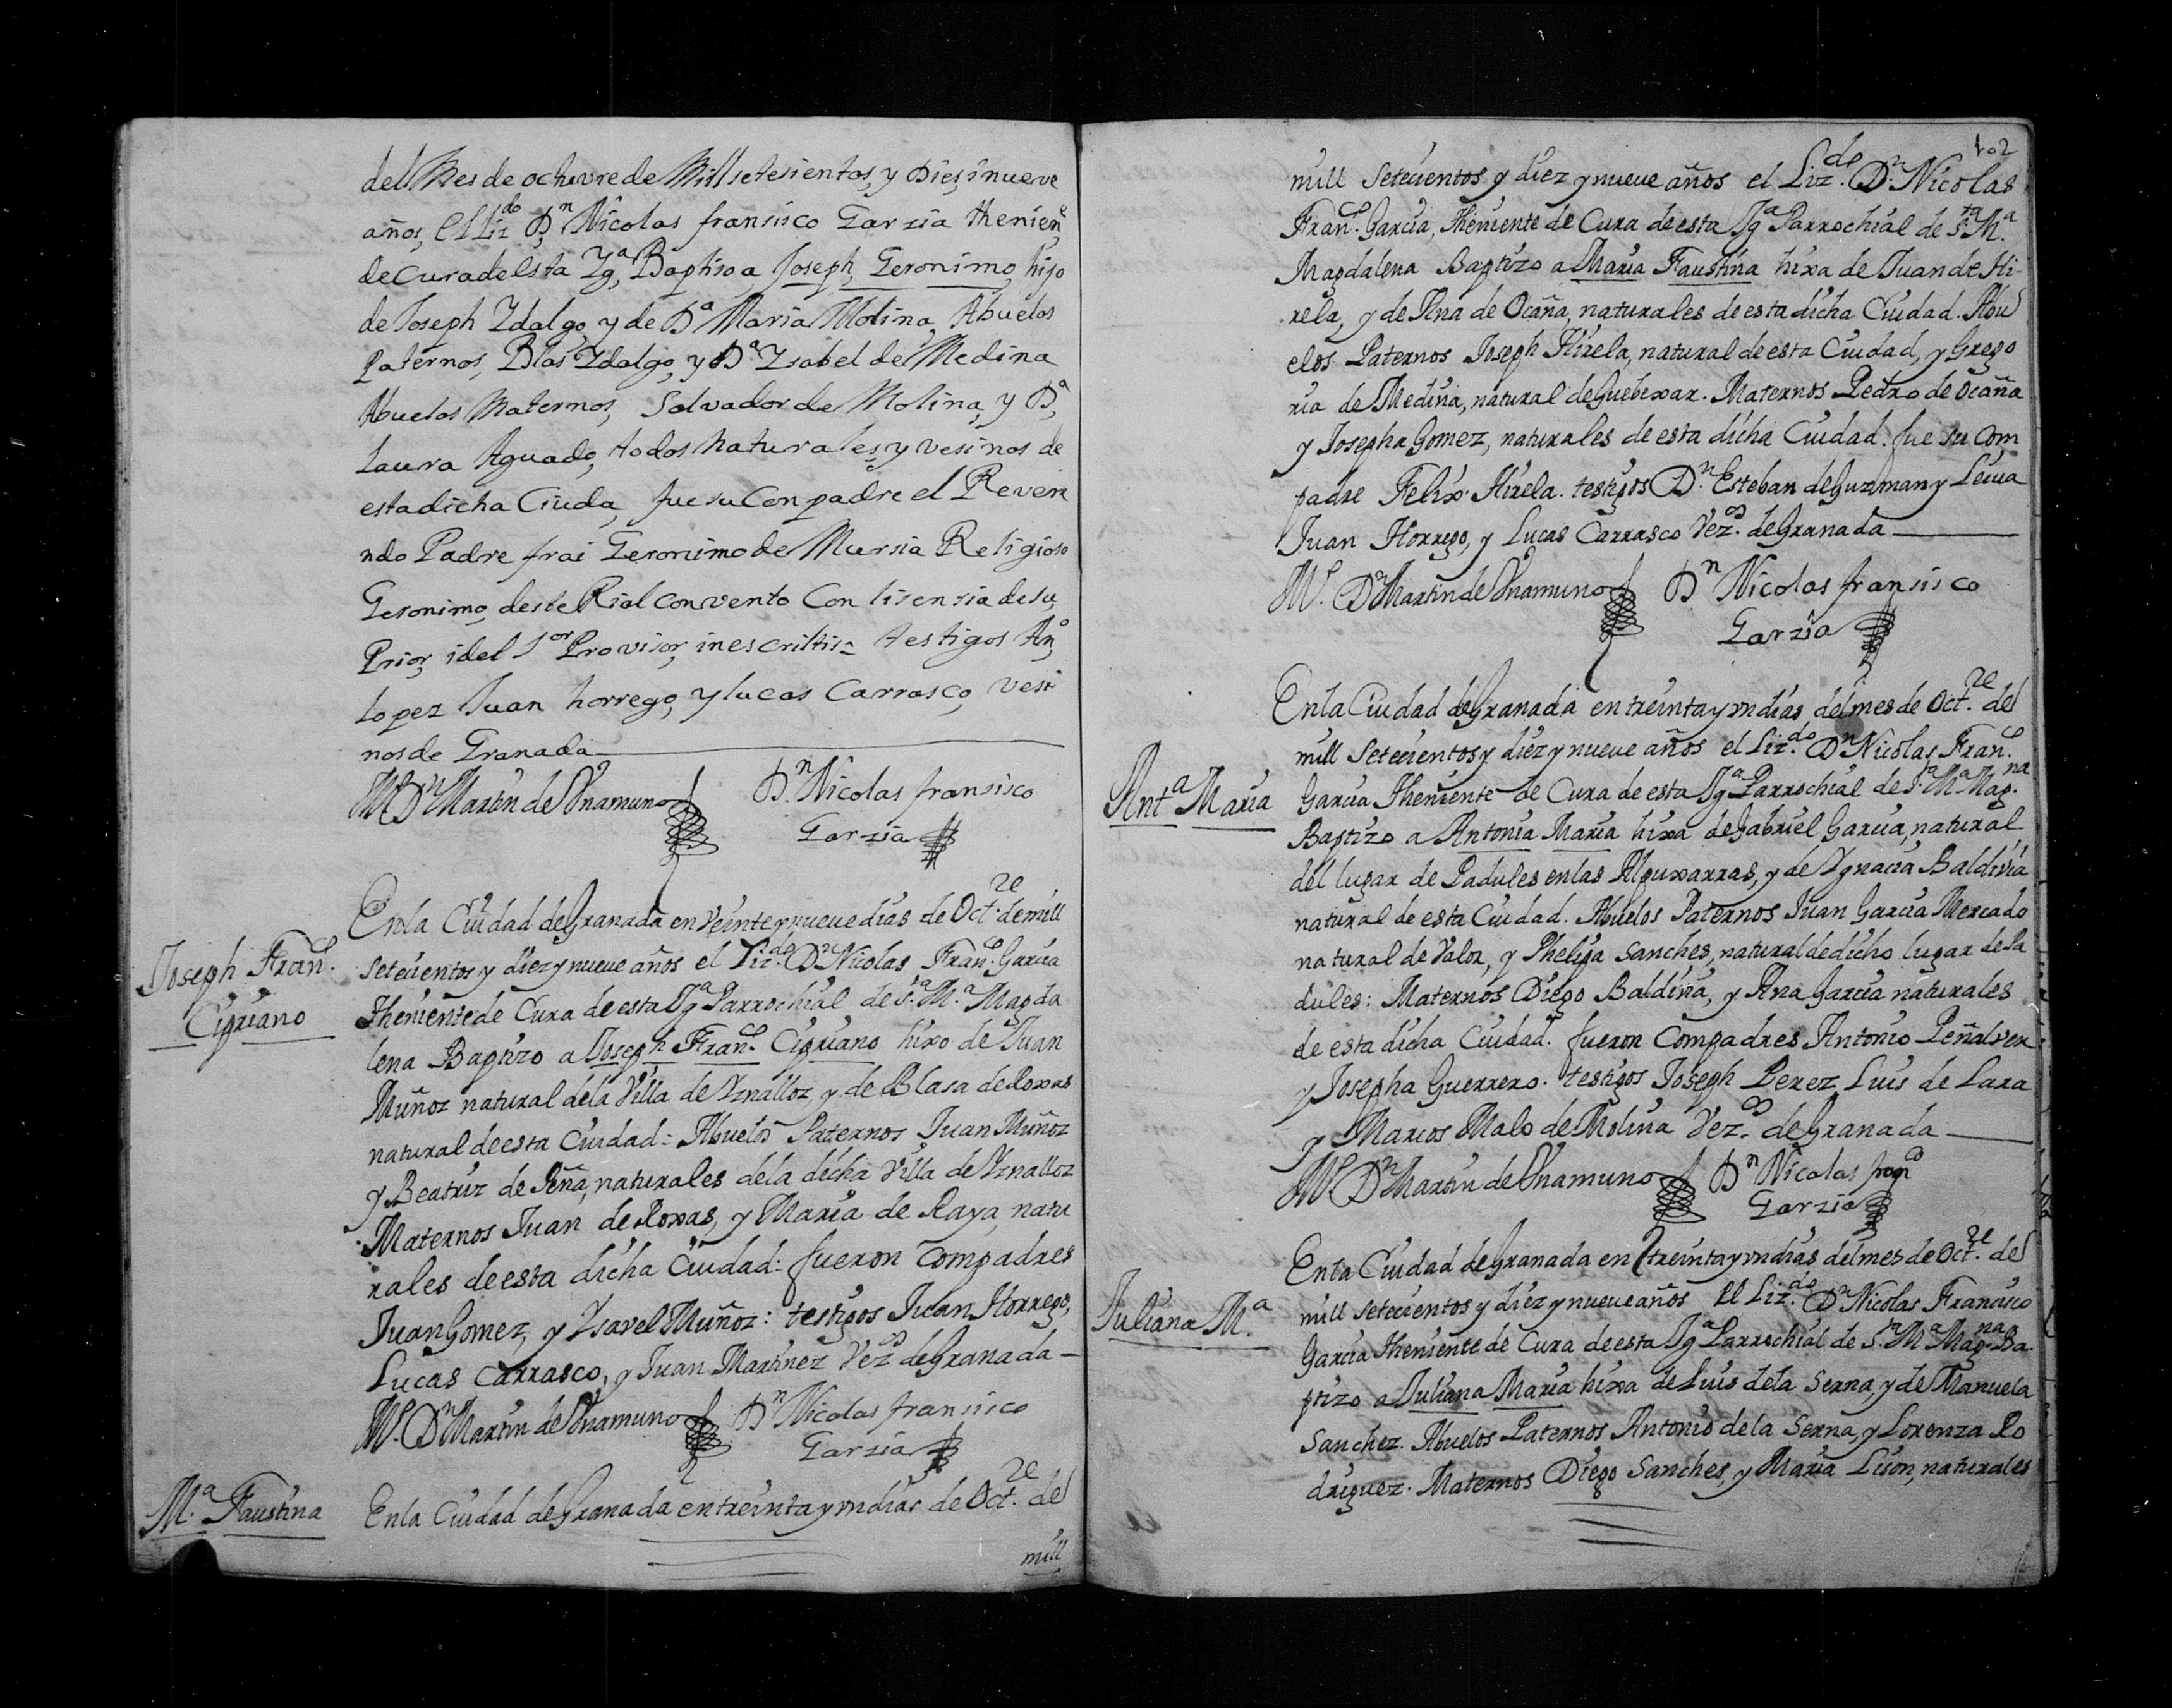 del Mes de octuvre de Mill setesientos, y Dies, i nueve
años, el Liz.do D.n Nicolas fransisco Garzia thenien.e
de cura de Esta Yg.a, Baptiso a, Joseph, Geronimo, hijo
de Joseph Ydalgo, y de D.a Maria Molina, Abuelos
paternos, Blas Ydalgo, y D.a Ysabel de Medina
Abuelos Maternos, Salvador de Molina, y D.a
Laura Aguado, todos naturales, y vesinos de
esta dicha Ciuda, fue su Conpadre el Reveren
ndo Padre frai Geronimo de Mursia Religioso
Geronimo, deste Rial convento Con lisensia de su,
Prior, i del S.or Provisor, inescriltis= testigos An.o
Lopez Juan horrego, y lucas Carrasco, vesi
nos de Granada
M.o D.n Martin de Vnamuno D.n Nicolas fransisco
Garzia
En la Ciudad de Granada en veinte y nueve dias de Oct.re de mill
Joseph Fran.co
Cipriano
setecientos y diez y nueve años el Liz.do D.n Nicolas Fran.co Garcia
Theniente de Cura de esta Yg.a Parrochial de S.ta M.a Magda
lena Baptizo a Joseph Fran.co Cipriano hixo de Juan
Muñoz natural de la Villa de Yznalloz, y de Blasa de Roxas
natural de esta Ciudad= Abuelos Paternos Juan Muñoz
y Beatriz de Peña, naturales de la dicha Villa de Yznalloz
Maternos Juan de Roxas, y Maria de Raya, natu
rales de esta dicha Ciudad: fueron Compadres
Juan Gomez, y Ysavel Muñoz: testigos Juan Horrego,
Lucas Carrasco, y Juan Martinez Vez.os de Granada
M.o D.n Martin de Vnamuno D.n Nicolas fransisco
Garzia
M.a Faustina
En la Ciudad de Granada en treinta y vn dias de Oct.re del
mill
102
mill setecientos y diez y nueve años el Liz.do D.n Nicolas
Fran.co Garcia, Theniente de Cura de esta Yg.a Parrochial de S.ta M.a
Magdalena Baptizo a Maria Faustina hixa de Juan de Hi
rela, y de Ana de Ocaña, naturales de esta dicha Ciudad. Abu
elos Paternos Joseph Hirela, natural de esta Ciudad, y Grego
ria de Medina, natural de Guebexar. Maternos Pedro de Ocaña
y Josepha Gomez, naturales de esta dicha Ciudad. fue su Com
padre Felix Hirela. testigos D.n Esteban de Guzman y Leiua
Juan Horrego, y Lucas Carrasco Vez.os de Granada
M.o D.n Martin de Vnamuno D.n Nicolas fransisco
Garzia
En la Ciudad de Granada en treinta y vn dias del mes de Oct.re del
mill setecientos y diez y nueve años el Liz.do D.n Nicolas Fran.co
Ant.a Maria
Garcia Theniente de Cura de esta Yg.a Parrochial de S.ta M.a Mag.na
Baptizo a Antonia Maria hixa de Gabriel Garcia, natural
del lugar de Padules en las Alpuxarras, y de Ygnacia Baldivia
natural de esta Ciudad. Abuelos Paternos Juan Garcia Mercado
natural de Valor, y Phelipa Sanches, natural de dicho lugar de Pa
dules: Maternos Diego Baldivia, y Ana Garcia naturales
de esta dicha Ciudad. fueron Compadres Antonio Peñalver
y Josepha Guerrero. testigos Joseph Perez, Luis de Lara
y Marcos Malo de Molina Vez.os de Granada
M.o D.n Martin de Vnamuno D.n Nicolas fran.co
Garzia
En la Ciudad de Granada en treinta y vn dias del mes de Oct.re del
Juliana M.a
mill setecientos y diez y nueve años el Liz.do D.n Nicolas Francisco
Garcia Theniente de Cura de esta Yg.a Parrochial de S.ta M.a Mag.na Ba
ptizo a Juliana Maria hixa de Luis de la Serna, y de Manuela
Sanchez. Abuelos Paternos Antonio de la Serna, y Lorenza Ro
driguez. Maternos Diego Sanches, y Maria Lison, naturales